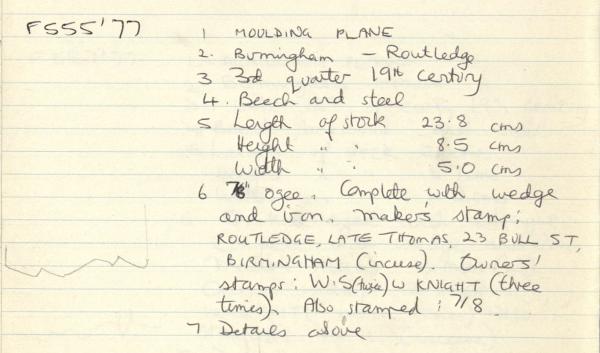 F555'77
1 MOULDING PLANE
2. Birmingham – Routledge
3 3rd quarter 19th century
4. Beech and steel
5 Length of stock 23.8 cms
Height " " 8.5 cms
Width " " 5.0 cms
6 7/8" ogee. Complete with wedge
and iron. Maker's stamp:
ROUTLEDGE, LATE THOMAS, 23 BULL ST,
BIRMINGHAM (incuse). Owners'
stamps: W.S (twice) W KNIGHT (three
times). Also stamped: 7/8.
7 Details above